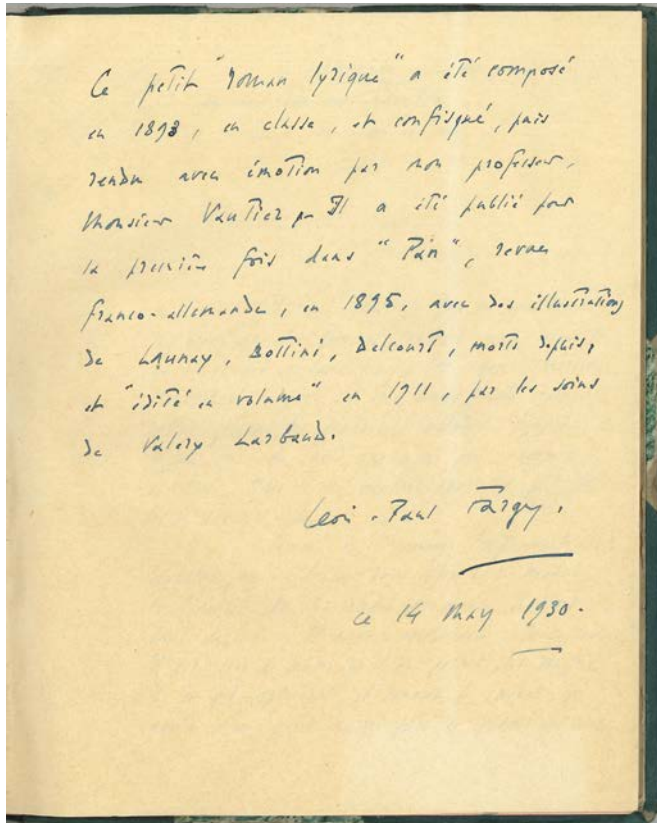 Ce petit "roman lyrique" a été composé
en 1893, en classe, et confisqué, puis
rendu avec émotion par mon professeur,
Monsieur Vautier. Il a été publié pour
la première fois dans "Pan", revue
franco-allemande, en 1895, avec des illustrations
de Launay, Bottini, Delcourt, morts depuis,
et "édité en volume" en 1911, par les soins
de Valery Larbaud.
Léon-Paul Fargue.
ce 14 May 1930.